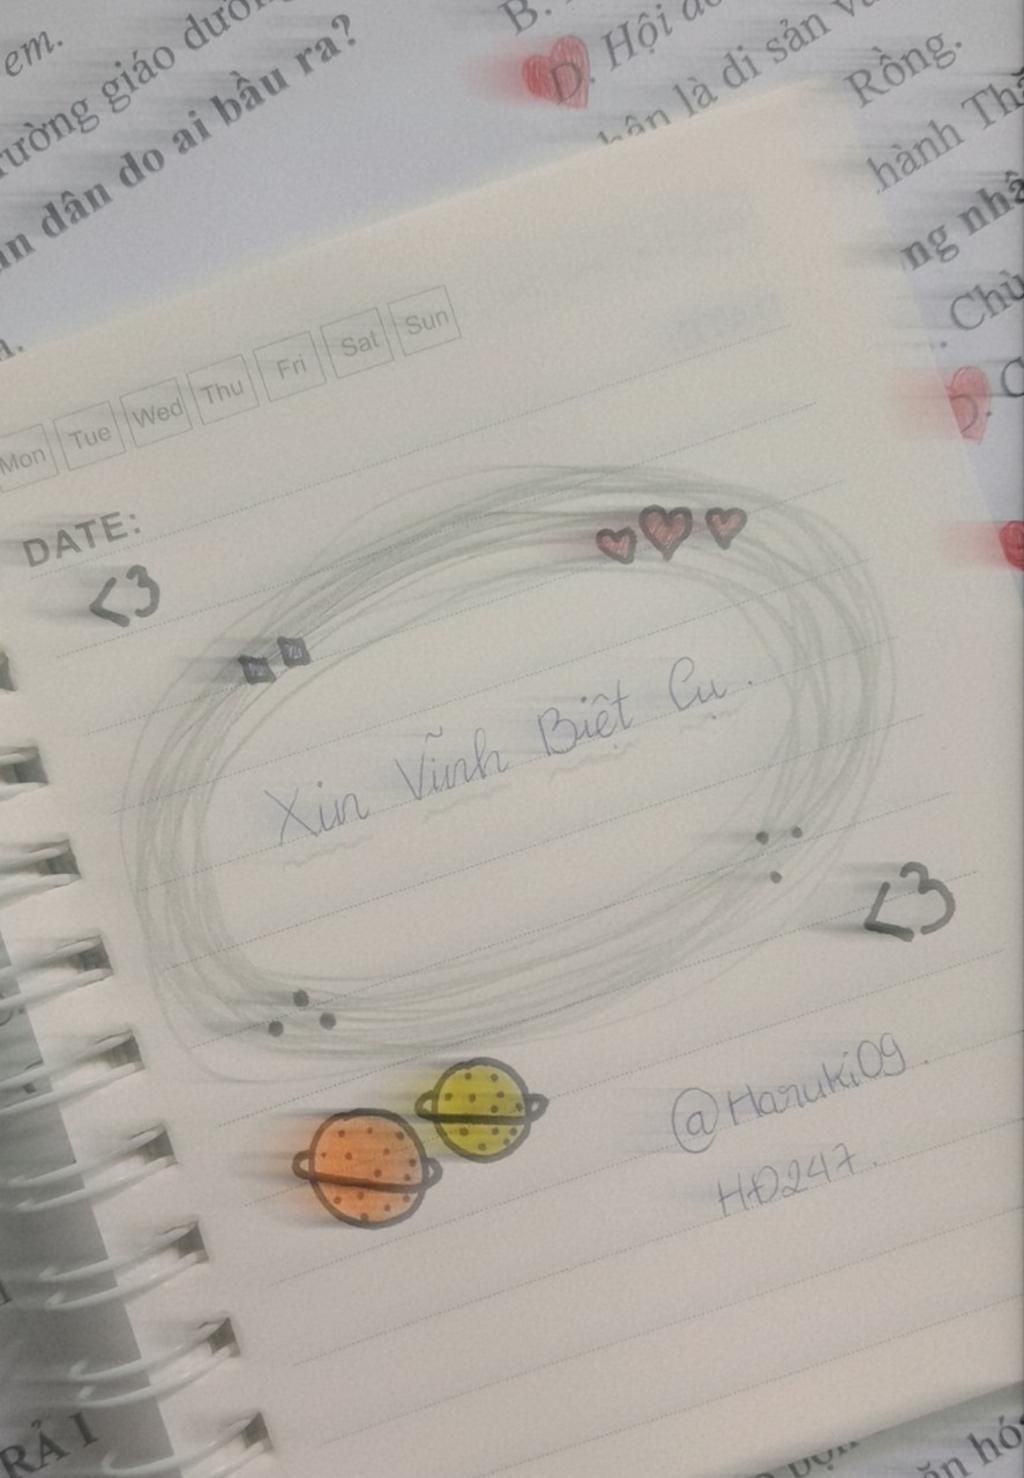 em.
rường giáo dưỡn
ân dân do ai bầu ra?
B.
D. Hội đ
hân là di sản v
Rồng.
hành Th
ng nhâ
. Chù
D. C
Mon Tue Wed Thu Fri Sat Sun
DATE:
<3
Xin Vĩnh Biệt Cu.
<3
@Haruki09.
HĐ247.
RẢ I